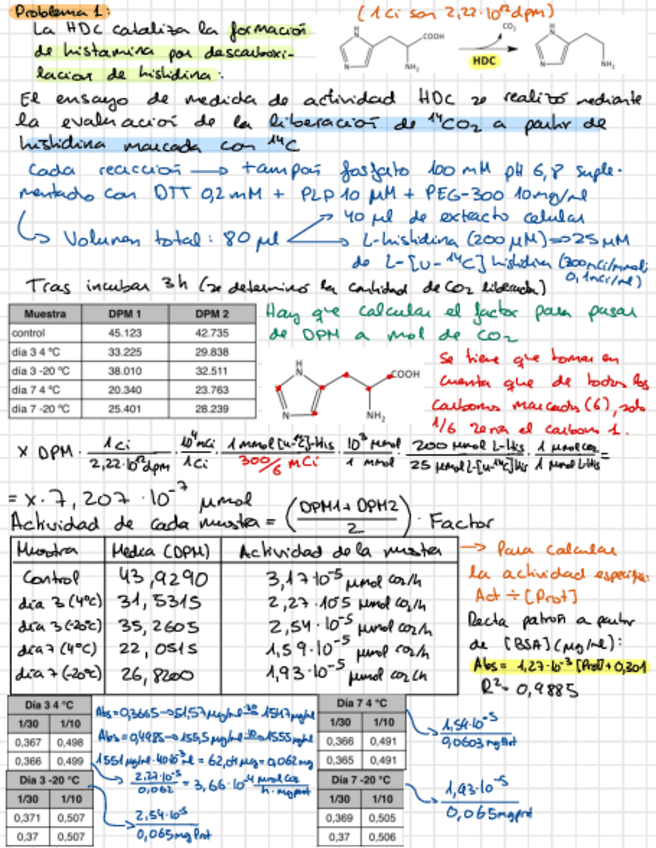 Problema 1: (1 Ci son 2,22·10¹² dpm)
La HDC cataliza la formación
de histamina por descarboxi-
lación de histidina:
COOH
NH₂
CO₂
HDC
NH₂
El ensayo de medida de actividad HDC se realizó mediante
la evaluación de la liberación de ¹⁴CO₂ a partir de
histidina marcada con ¹⁴C
Cada reacción → tampón fosfato 100 mM pH 6,8 suple-
mentado con DTT 0,2 mM + PLP 10 µM + PEG-300 10mg/ml
Volumen total: 80 µl
40 µl de extracto celular
L-histidina (200 µM) ⇒ 25 µM
de L-[U-¹⁴C] histidina (300mCi/mmol;
0,1mCi/ml)
Tras incubar 3h (se determinó la cantidad de CO₂ liberada)
Muestra DPM 1 DPM 2
control 45.123 42.735
día 3 4 ºC 33.225 29.838
día 3 -20 ºC 38.010 32.511
día 7 4 ºC 20.340 23.763
día 7 -20 ºC 25.401 28.239
Hay que calcular el factor para pasar
de DPM a mol de CO₂
COOH
NH₂
Se tiene que tomar en
cuenta que de todos los
carbonos marcados (6), solo
1/6 sería el carbono 1.
x DPM · 1 Ci / 2,22·10¹² dpm · mCi / 1 Ci · 1 mmol [U-¹⁴C]-His / 300/6 mCi · 10³ µmol / 1 mmol · 200 µmol L-His / 25 µmol L-[U-¹⁴C]His · 1 µmol CO₂ / 1 µmol L-His =
= x · 7,207 · 10⁻⁷ µmol
Actividad de cada muestra = (DPM1 + DPM2 / 2) · Factor
Muestra Media (DPM) Actividad de la muestra
Control 43,9290 3,17·10⁻⁵ µmol CO₂/h
día 3 (4ºC) 31,5315 2,27·10⁻⁵ µmol CO₂/h
día 3 (-20ºC) 35,2605 2,54·10⁻⁵ µmol CO₂/h
día 7 (4ºC) 22,0515 1,59·10⁻⁵ µmol CO₂/h
día 7 (-20ºC) 26,8200 1,93·10⁻⁵ µmol CO₂/h
→ Para calcular
la actividad específica:
Act ÷ [Prot]
Recta patrón a partir
de [BSA] (µg/ml):
Abs = 1,27·10⁻³ [Prot] + 0,301
R² = 0,9885
Día 3 4 ºC
1/30 1/10
0,367 0,498
0,366 0,499
Abs = 0,3665 → 51,57 µg/ml ·30 → 1547 µg/ml
Abs = 0,4985 → 155,5 µg/ml ·10 → 1555 µg/ml
1551 µg/ml · 40·10⁻³ ml = 62,04 µg = 0,062 mg
2,27·10⁻⁵ / 0,062 = 3,66·10⁻⁴ µmol CO₂ / h · mg prot
Día 3 -20 ºC
1/30 1/10
0,371 0,507
0,37 0,507
2,54·10⁻⁵ / 0,065 mg Prot
Día 7 4 ºC
1/30 1/10
0,366 0,491
0,365 0,491
1,59·10⁻⁵ / 0,0603 mg Prot
Día 7 -20 ºC
1/30 1/10
0,369 0,505
0,37 0,506
1,93·10⁻⁵ / 0,065 mg prot